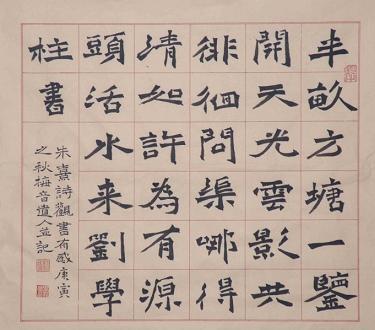 半畝方塘一鑒
開天光雲影共
徘徊問渠哪得
清如許為有源
頭活水来劉學
柱書
朱熹詩觀書有感庚寅
之秋梅音遺人並記